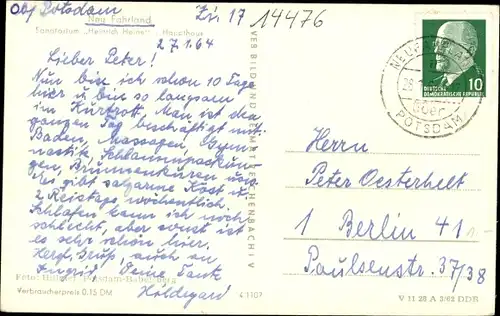 Obj Potsdam
Neu Fahrland
Sanatorium „Heinrich Heine“ Haupthaus
Zi. 17
14476
27.1.64
Lieber Peter!
Nun bin ich schon 10 Tage
hier u bin so langsam
im Kurtrott. Man ist den
ganzen Tag beschäftigt mit
Baden, Massagen, Gym-
nastik, Schlammpackun-
gen, Brunnenkuren usw.
Es gibt salzarme Kost u.
2 Reistage wöchentlich.
Schlafen kann ich noch
schlecht, aber sonst ist
es sehr schön hier.
Herzl. Grüße, auch an
Ingrid, Deine Tante
Hildegard
Potsdam-Babelsberg
Verbraucherpreis 0.15 DM
VEB BILD UND HEIMAT REICHENBACH i V
DEUTSCHE DEMOKRATISCHE REPUBLIK
10
POTSDAM
Herrn
Peter Oesterhelt
1 Berlin 41
Paulsenstr. 37/38
V 11 28 A 2/62 DDR